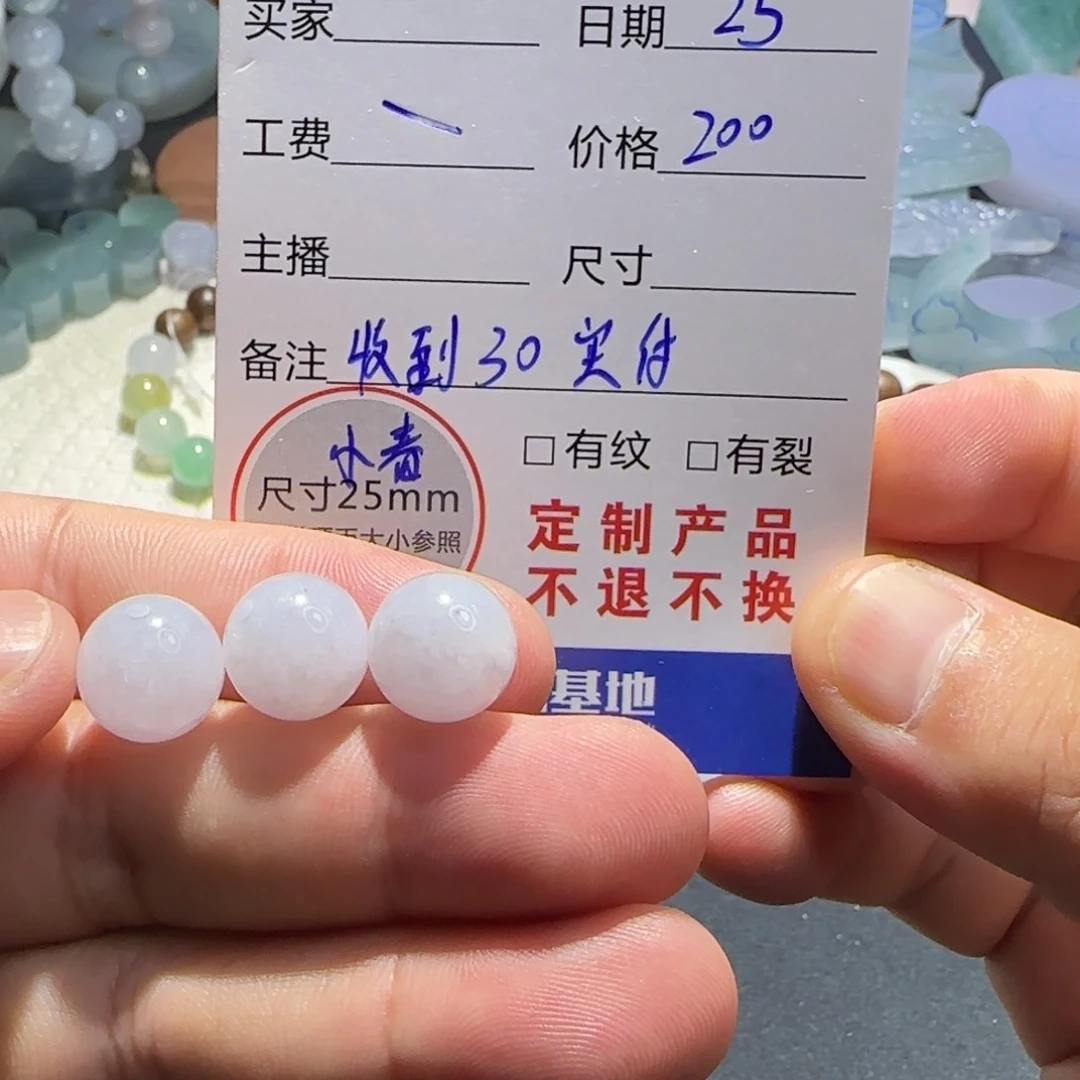 买家 日期 25
工费 一 价格 200
主播 尺寸
备注 收到30实付
小青
尺寸25mm
大小参照
□有纹 □有裂
定制产品
不退不换
基地